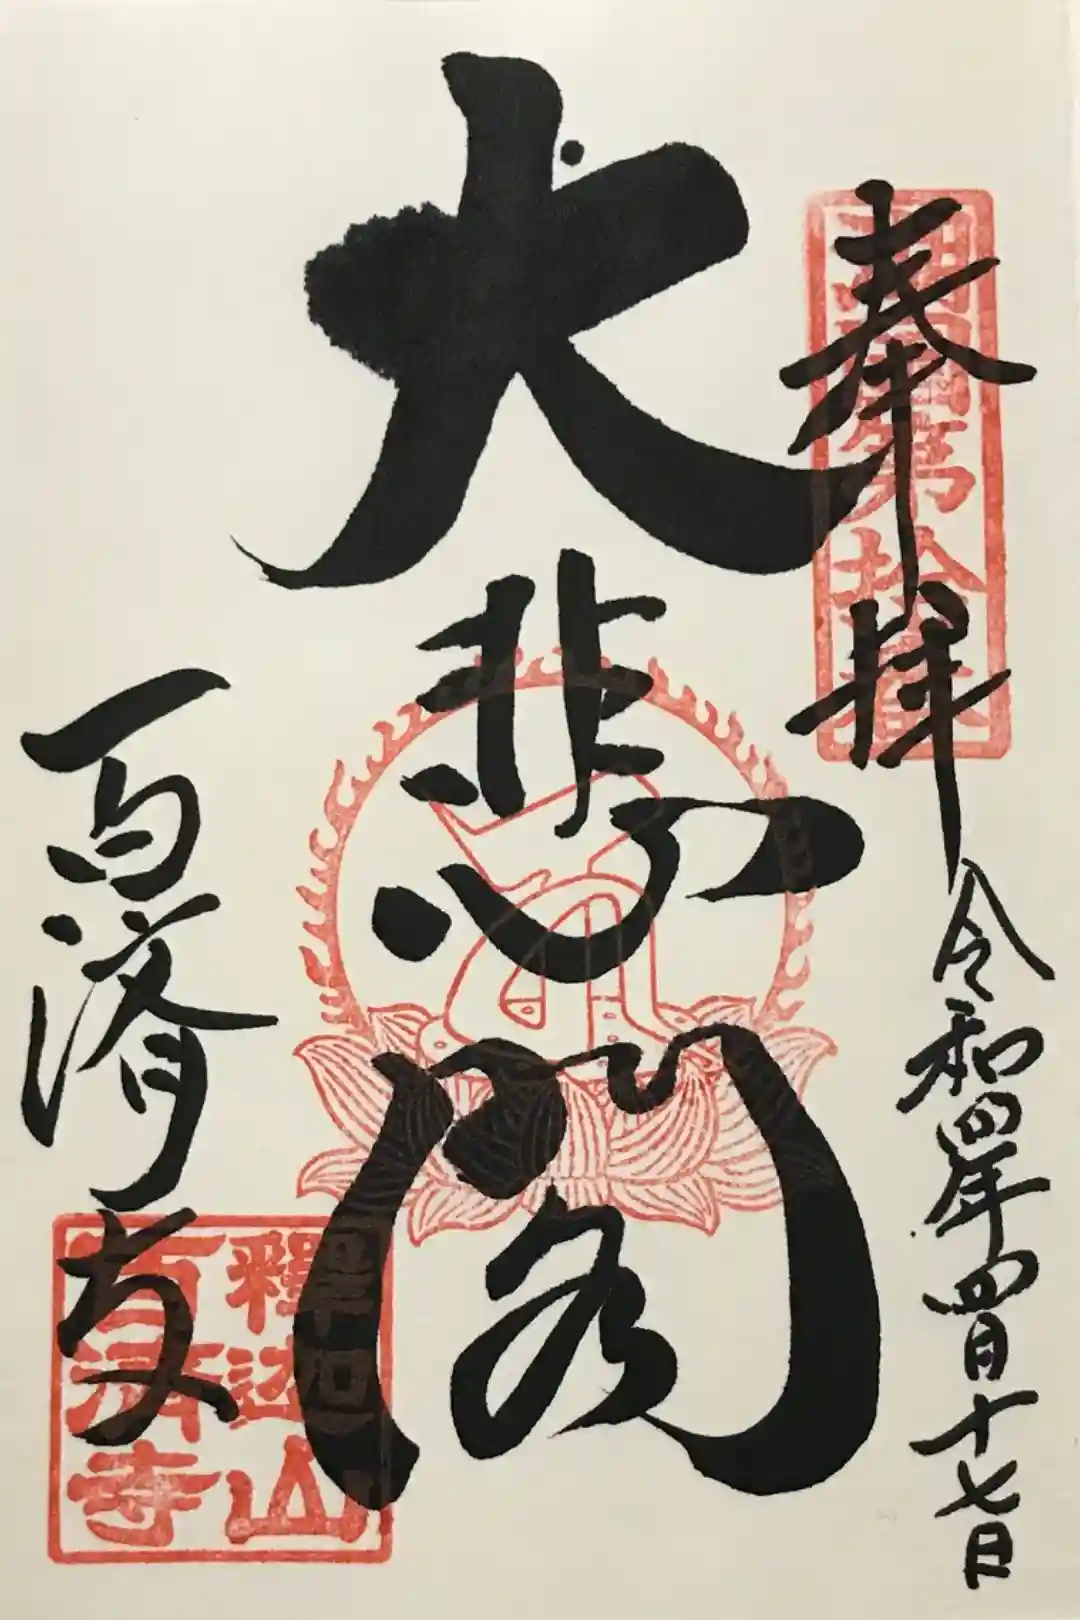 奉拝
令和四年四月十七日
第拾
大悲閣
百済寺
釋迦山
百濟寺